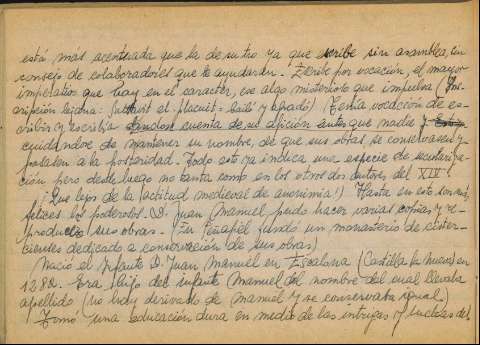 está más acentuada que la de su tío ya que escribe sin asamblea, sin
consejo de colaboradores que le ayudaran. Escribe por vocación, el mayor
imperativo que hay en el caracter, ese algo misterioso que impulsa
cripción lejana: Tenía vocación de es-
cribir y escribía dandose cuenta de su afición antes que nadie y
cuidándose de mantener su nombre, de que sus obras se conservasen y
pasaten a la posteridad. Todo esto ya indica una especie de seculariza-
ción pero desde luego no tanta como en los otros dos autores del XIV!
¡Que lejos de la (actitud medieval de anonimia!) Hasta en esto son más
felices los poderosos. D. Juan Manuel pudo hacer varias copias y re-
producir sus obras. (En Peñafiel fundó un monasterio de cister-
cienses dedicado a conservación de sus obras)
Nació el Infante D. Juan Manuel en Escalona (Castilla la Nueva) en
1282. Era hijo del infante Manuel del nombre del cual llevaba
apellido (no hay derivado de Manuel y se conservaba igual.)
Tomó una educación dura en medio de las intrigas y luchas del